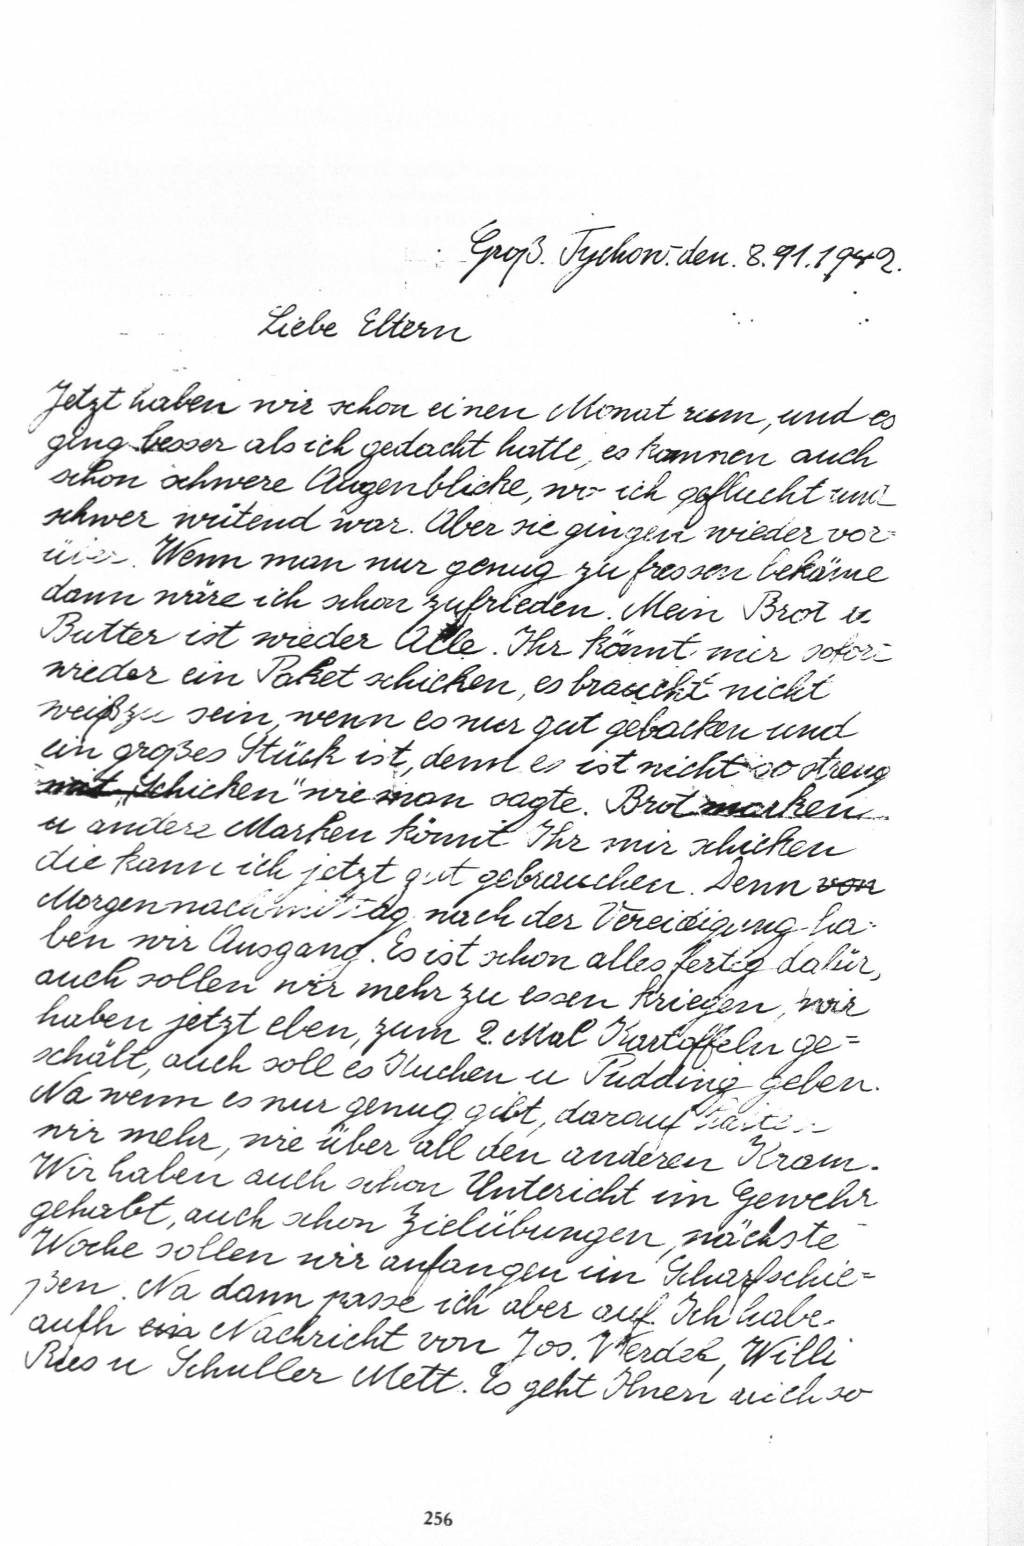 Groß. Tychow. den. 8.11.1942.
Liebe Eltern
Jetzt haben wir schon einen Monat rum, und es
ging besser als ich gedacht hatte, es kammen auch
schon schwere Augenblicke, wo ich geflucht und
schwer wütend war. Aber sie gingen wieder vor-
über. Wenn man nur genug zu fressen bekäme
dann wäre ich schon zufrieden. Mein Brot u
Butter ist wieder Alle. Ihr könnt mir sofort
wieder ein Paket schicken, es braucht nicht
weiß zu sein, wenn es nur gut gebacken und
ein großes Stück ist, denn es ist nicht so streng
mit „Schicken" wie man sagte. Brotmarken
u andere Marken könnt Ihr mir schicken
die kann ich jetzt gut gebrauchen. Denn von
Morgennachmittag nach der Vereidigung ha-
ben wir Ausgang. Es ist schon alles fertig dafür,
auch sollen wir mehr zu essen kriegen, wir
haben jetzt eben, zum 2. Mal Kartoffeln ge=
schält, auch soll es Kuchen u Pudding geben.
Na wenn es nur genug gibt, darauf halten
wir mehr, wie über all den anderen Kram.
Wir haben auch schon Untericht im Gewehr
gehabt, auch schon Zielübungen, nächste
Woche sollen wir anfangen im Scharfschie=
ßen. Na dann passe ich aber auf. Ich habe
auch ein Nachricht von Jos. Werdel, Willi
Ries u Schuller Mett. Es geht Ihnen auch so
256